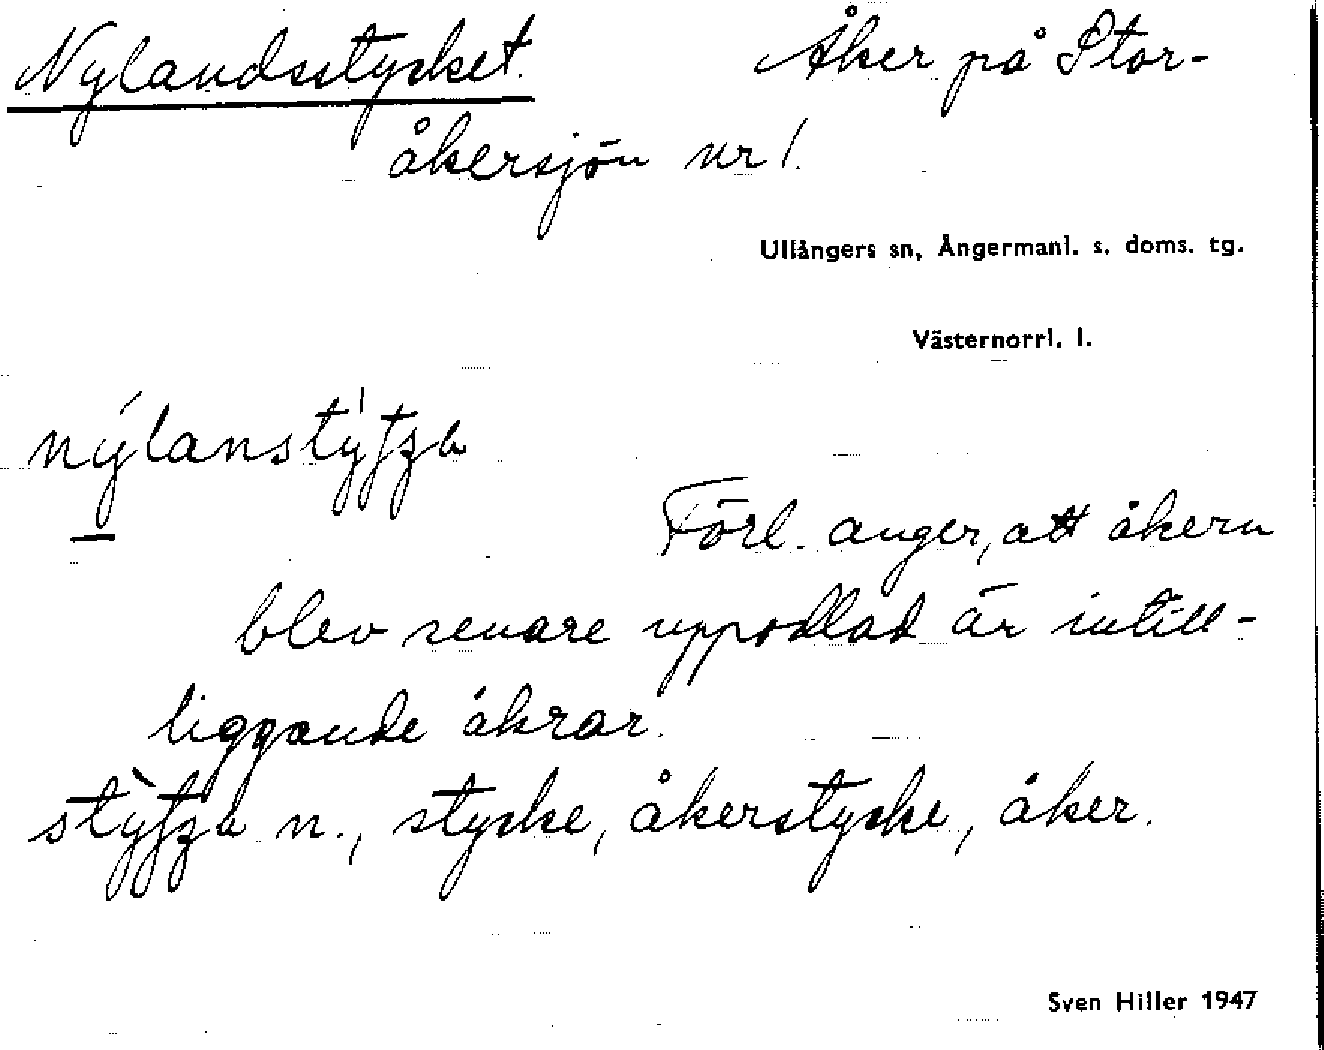 Nylandsstycket. Åker på Stor-
åkersjön nr 1.
Ullångers sn, Ångermanl. s. doms. tg.
Västernorrl. l.
Förl. anger, att åkern
blev senare uppodlad än intill-
liggande åkrar.
n., stycke, åkerstycke, åker.
Sven Hiller 1947